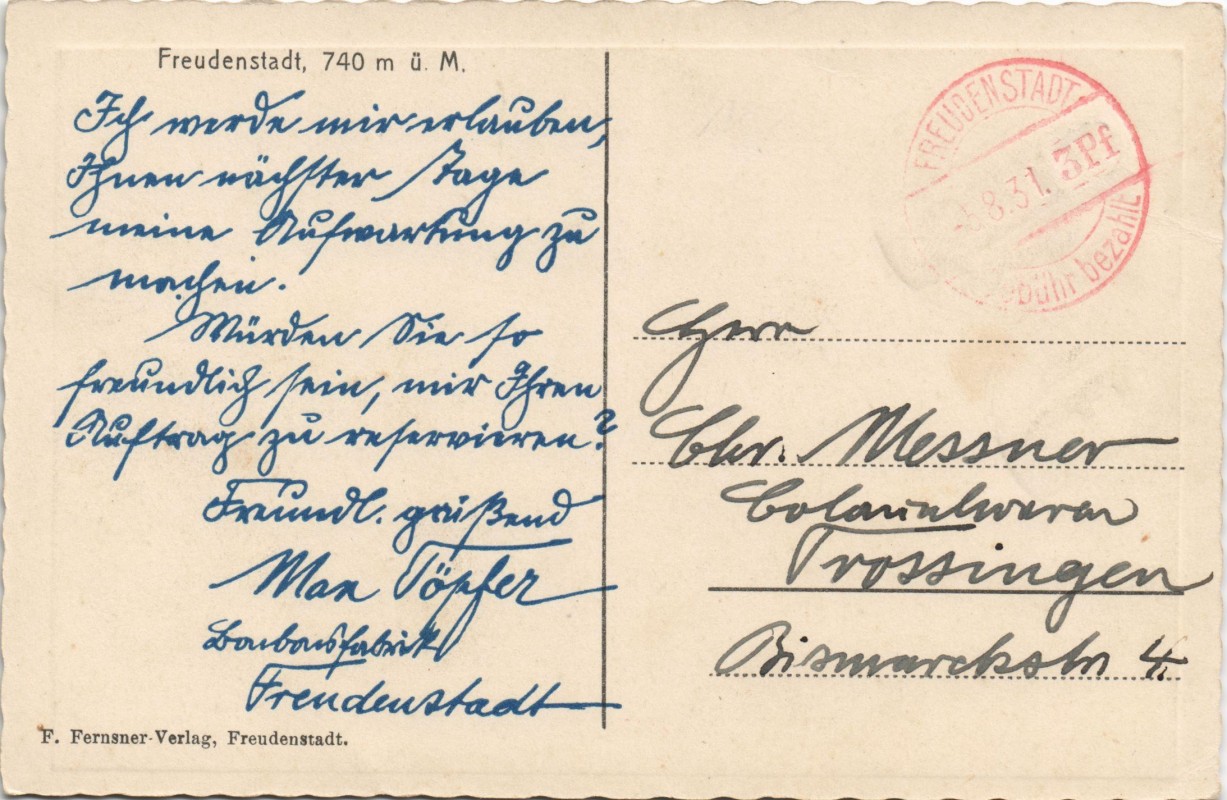 Freudenstadt, 740 m ü. M.
Ich werde mir erlauben,
Ihnen nächster Tage
meine Aufwartung zu
machen.
Würden Sie so
freundlich sein, mir Ihren
Auftrag zu reservieren?
Freundl. grüßend
Max Töpfer
Bonbonsfabrik
Freudenstadt
F. Fernsner-Verlag, Freudenstadt.
FREUDENSTADT
8.31. 3Pf
Gebühr bezahlt
Herrn
Chr. Messner
Colonialwaren
Trossingen
Bismarckstr 4.